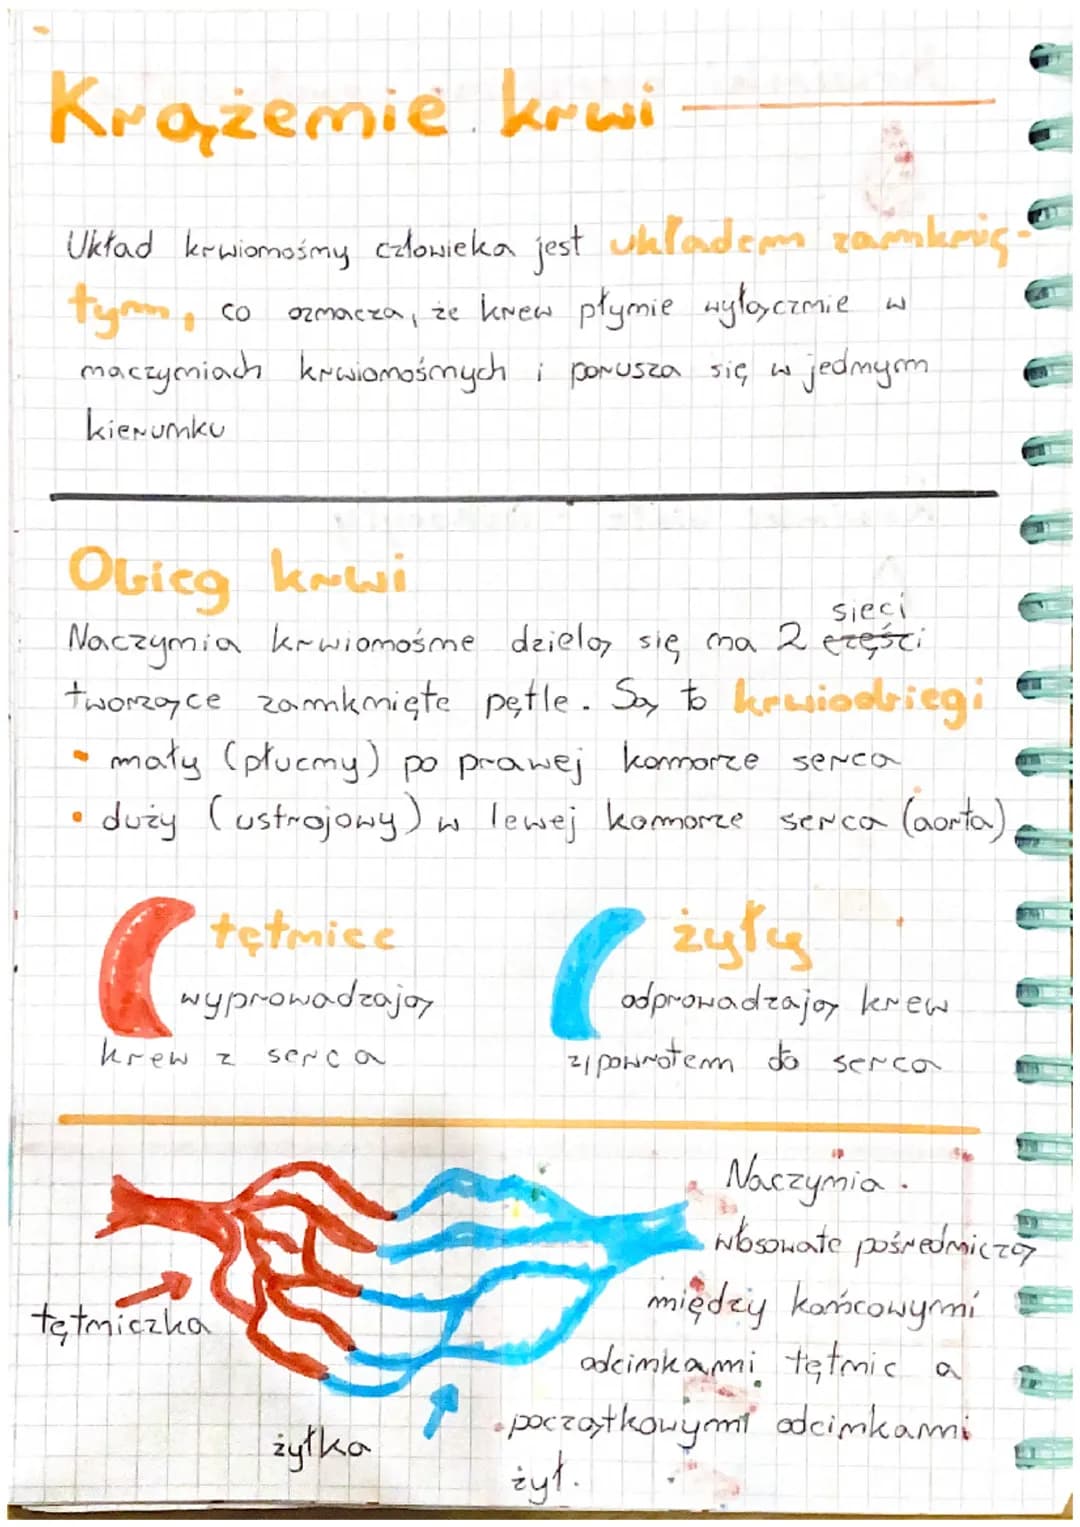 Krążenie krwi
Układ krwionośny człowieka jest układem zamknię-
tym, co oznacza, że krew płynie wyłącznie w
naczyniach krwionośnych i porusza się w jednym
kierunku
Obieg krwi
sieci
Naczynia krwionośne dzielą się na 2 części
tworzące zamknięte pętle. Są to krwiobiegi
• mały (płucny) po prawej komorze serca
• duży (ustrojowy) w lewej komorze serca (aorta)
tętnice
wyprowadzają
krew z serca
żyły
odprowadzają krew
z powrotem do serca
tętniczka
żyłka
Naczynia
włosowate pośredniczą
między końcowymi
odcinkami tętnic a
początkowymi odcinkami
żył.